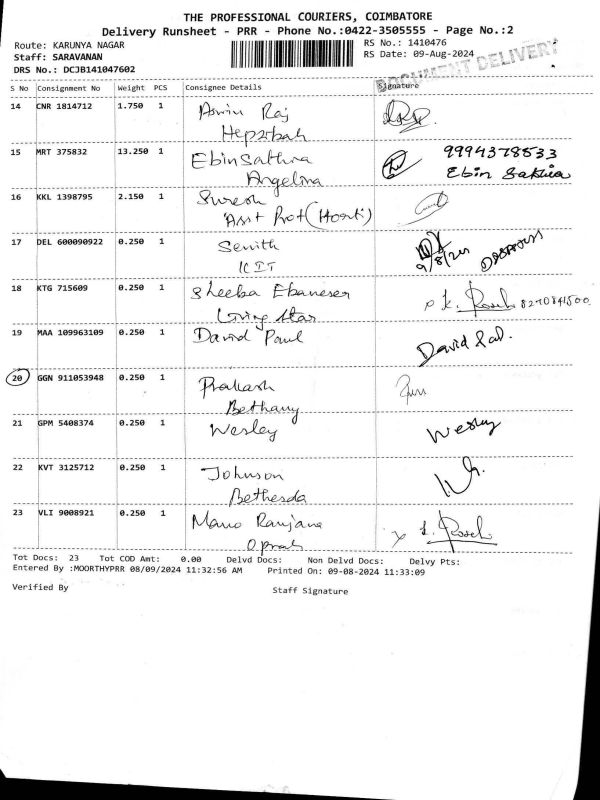 THE PROFESSIONAL COURIERS, COIMBATORE
Delivery Runsheet - PRR - Phone No.:0422-3505555 - Page No.:2
Route: KARUNYA NAGAR RS No.: 1410476
Staff: SARAVANAN RS Date: 09-Aug-2024
DRS No.: DCJB141047602
DOCUMENT DELIVERY
S No Consignment No Weight PCS Consignee Details Signature
14 CNR 1814712 1.750 1 Aswin Raj
Hepzibah
15 MRT 375832 13.250 1 Ebin Sathra 9994378533
Angelina Ebin Sakhia
16 KKL 1398795 2.150 1 Suresh
Asst Prof (Horti)
17 DEL 600090922 0.250 1 Senith
ICIT 9/8/24
18 KTG 715609 0.250 1 Sheeba Ebaneser 8270841500
Living Star
19 MAA 109963109 0.250 1 David Paul
20 GGN 911053948 0.250 1 Prakash
Bethany
21 GPM 5408374 0.250 1 Wesley Wesley
22 KVT 3125712 0.250 1 Johnson
Bethesda
23 VLI 9008921 0.250 1 Mano Ranjana
Tot Docs: 23 Tot COD Amt: 0.00 Delvd Docs: Non Delvd Docs: Delvy Pts:
Entered By :MOORTHYPRR 08/09/2024 11:32:56 AM Printed On: 09-08-2024 11:33:09
Verified By Staff Signature